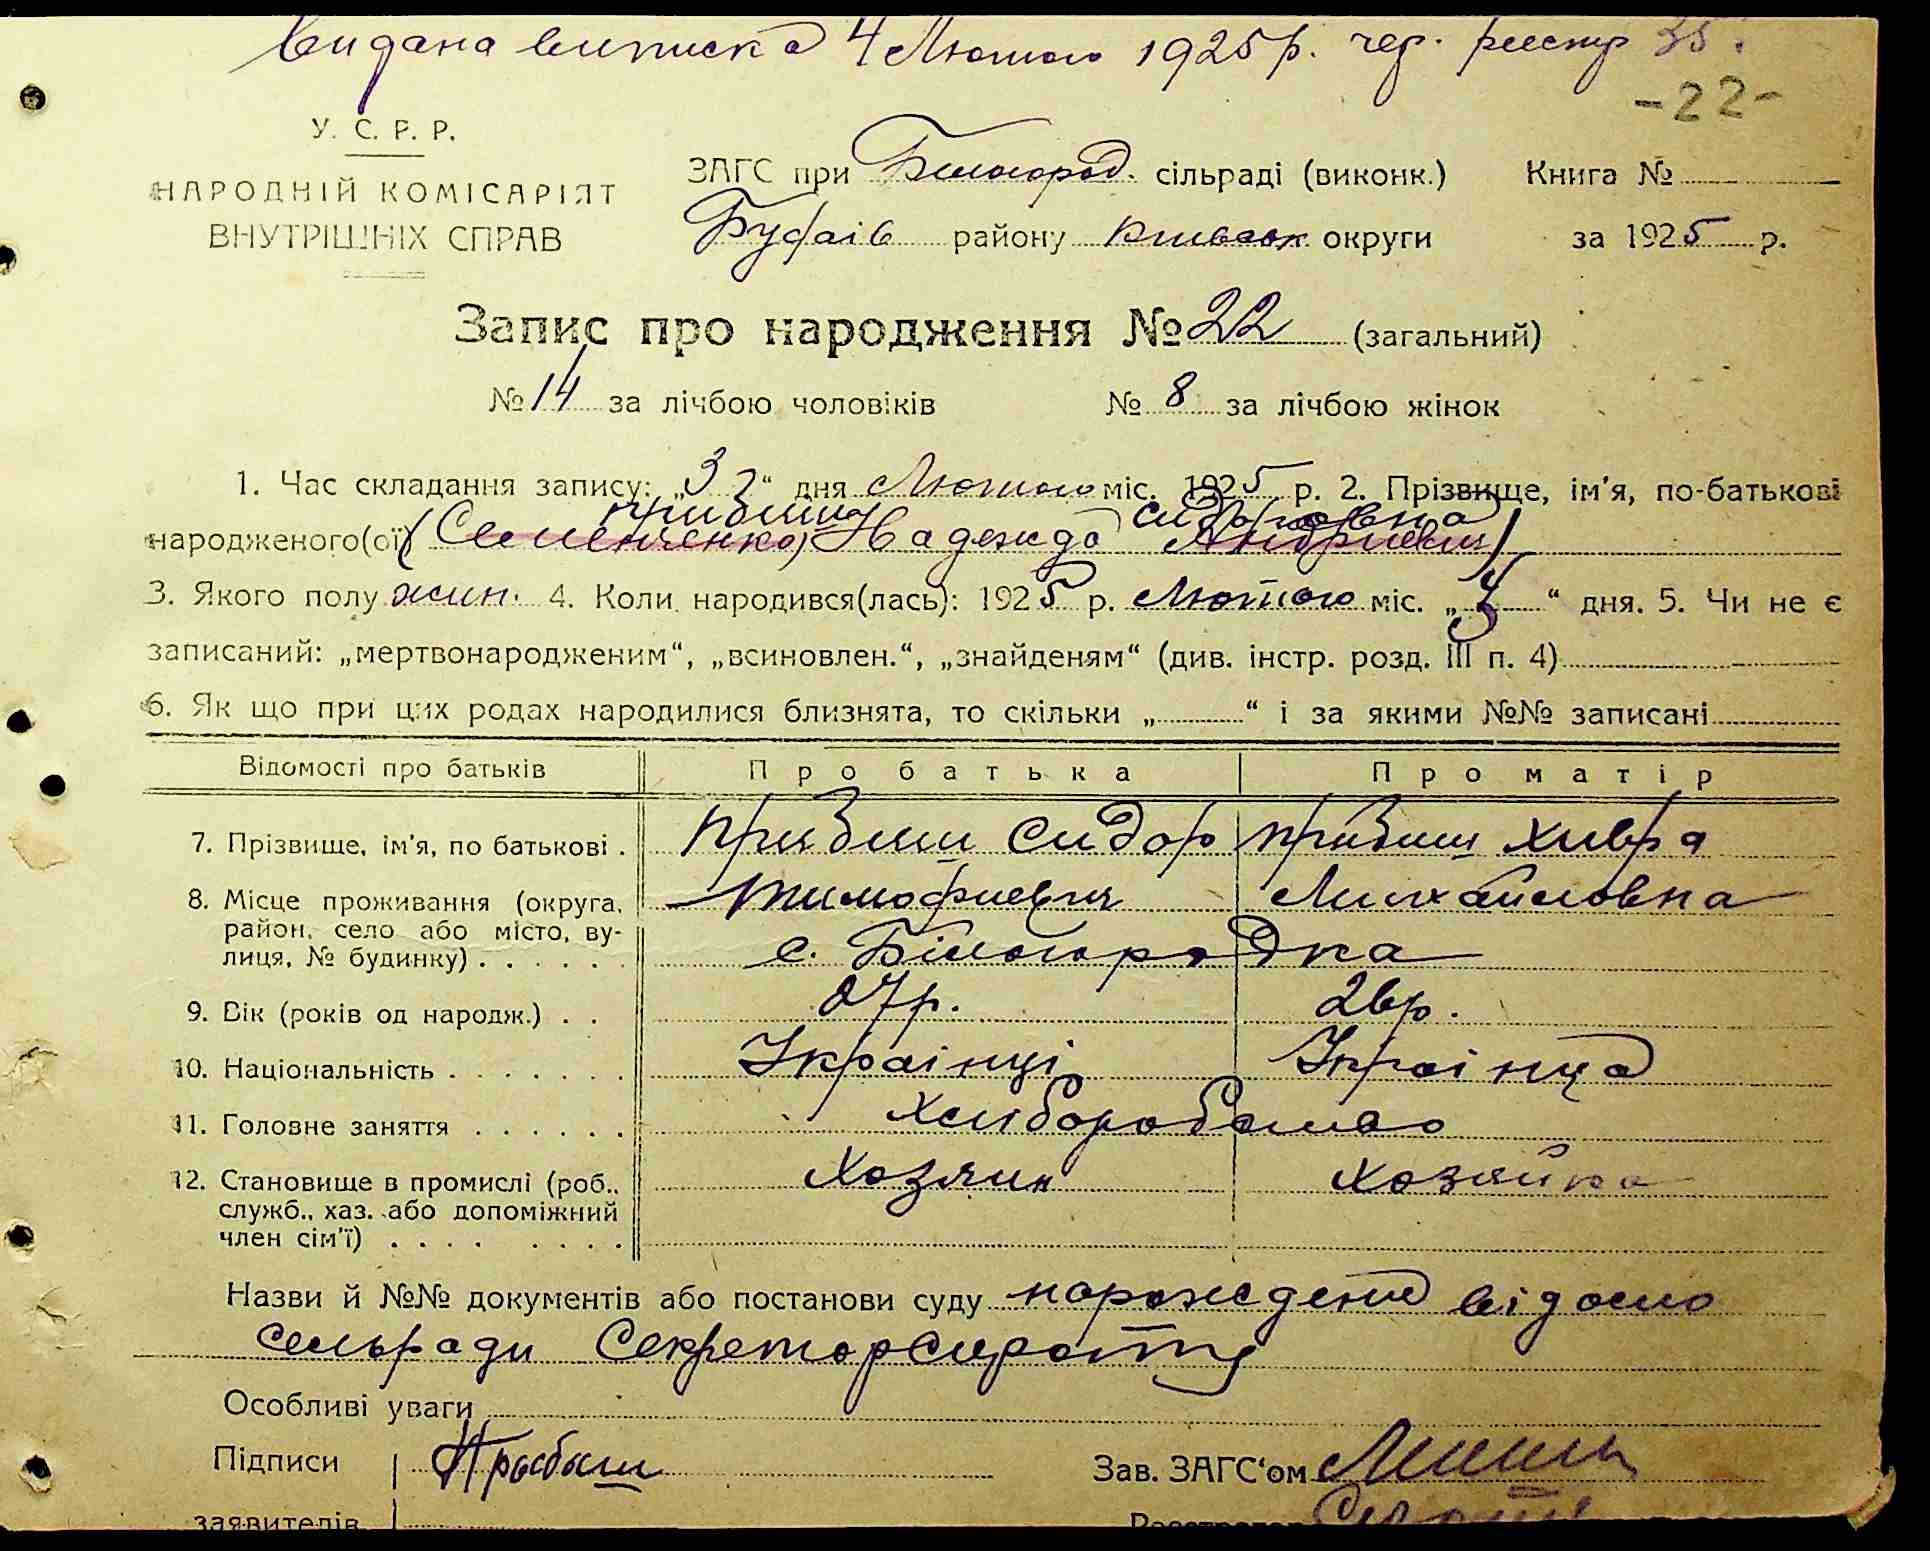 Видана виписка 4 Лютого 1925 р. чер. реєстр 35.
-22-
У. С. Р. Р.
НАРОДНІЙ КОМІСАРІЯТ
ВНУТРІШНІХ СПРАВ
ЗАГС при Білогород. сільраді (виконк.) Книга №
Буфаїв району Київськ округи за 1925 р.
Запис про народження № 22 (загальний)
№ 14 за лічбою чоловіків № 8 за лічбою жінок
1. Час складання запису: „3“ дня Лютого міс. 1925 р. 2. Прізвище, ім'я, по-батькові
Прибиш Сидоровна
народженого(ої) (Семенченко) Надежда
3. Якого полу жин. 4. Коли народився(лась): 1925 р. Лютого міс. „3“ дня. 5. Чи не є
записаний: „мертвонародженим“, „всиновлен.“, „знайденям“ (див. інстр. розд. III п. 4)
6. Як що при цих родах народилися близнята, то скільки „ “ і за якими №№ записані
Відомості про батьків Про батька Про матір
7. Прізвище, ім'я, по батькові . Прибиш Сидор Прибиш Хивря
8. Місце проживання (округа, Тимофиевич Михайловна
район, село або місто, ву-
лиця, № будинку) . . . . . . с. Білогородка
9. Вік (років од народж.) . . 27р. 26р.
10. Національність . . . . . . . Українці Українца
11. Головне заняття . . . . . . Хлиборобство
12. Становище в промислі (роб., Хозяин Хозяйка
служб., хаз. або допоміжний
член сім'ї) . . . . . . . .
Назви й №№ документів або постанови суду нарождение відомо
сельради Секретар Сирота
Особливі уваги
Підписи Прибыш Зав. ЗАГС'ом
заявителів Реєстратор Сирота